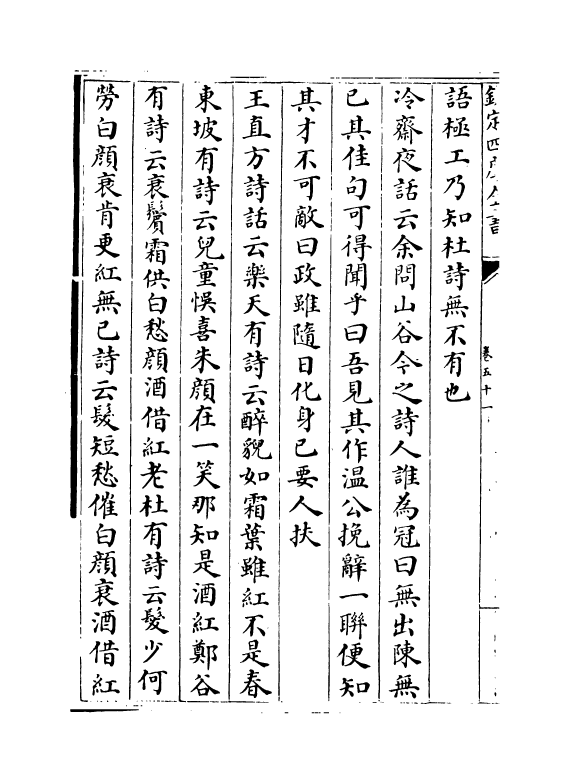 欽定四庫全書
卷五十一
語極工乃知杜詩無不有也
冷齋夜話云余問山谷今之詩人誰為冠曰無出陳無
已其佳句可得聞乎曰吾見其作温公挽辭一聯便知
其才不可敵曰政雖隨日化身已要人扶
王直方詩話云樂天有詩云醉貌如霜葉雖紅不是春
東坡有詩云兒童悞喜朱顔在一笑那知是酒紅鄭谷
有詩云衰鬢霜供白愁顔酒借紅老杜有詩云髮少何
勞白顔衰肯更紅無已詩云髮短愁催白顔衰酒借紅